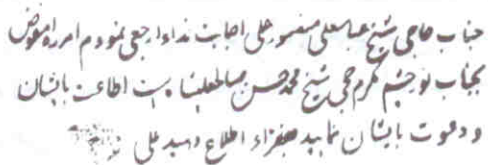 جناب حاجی شیخ عباسعلی منصور علی اجابت نداء ارجعی نمودم امر را مفوض
بجناب نور چشم مکرم حاجی شیخ محمد حسن صالحعلیشاه است اطاعت بایشان
و دعوت بایشان نمایید بفقراء اطلاع دهید علی